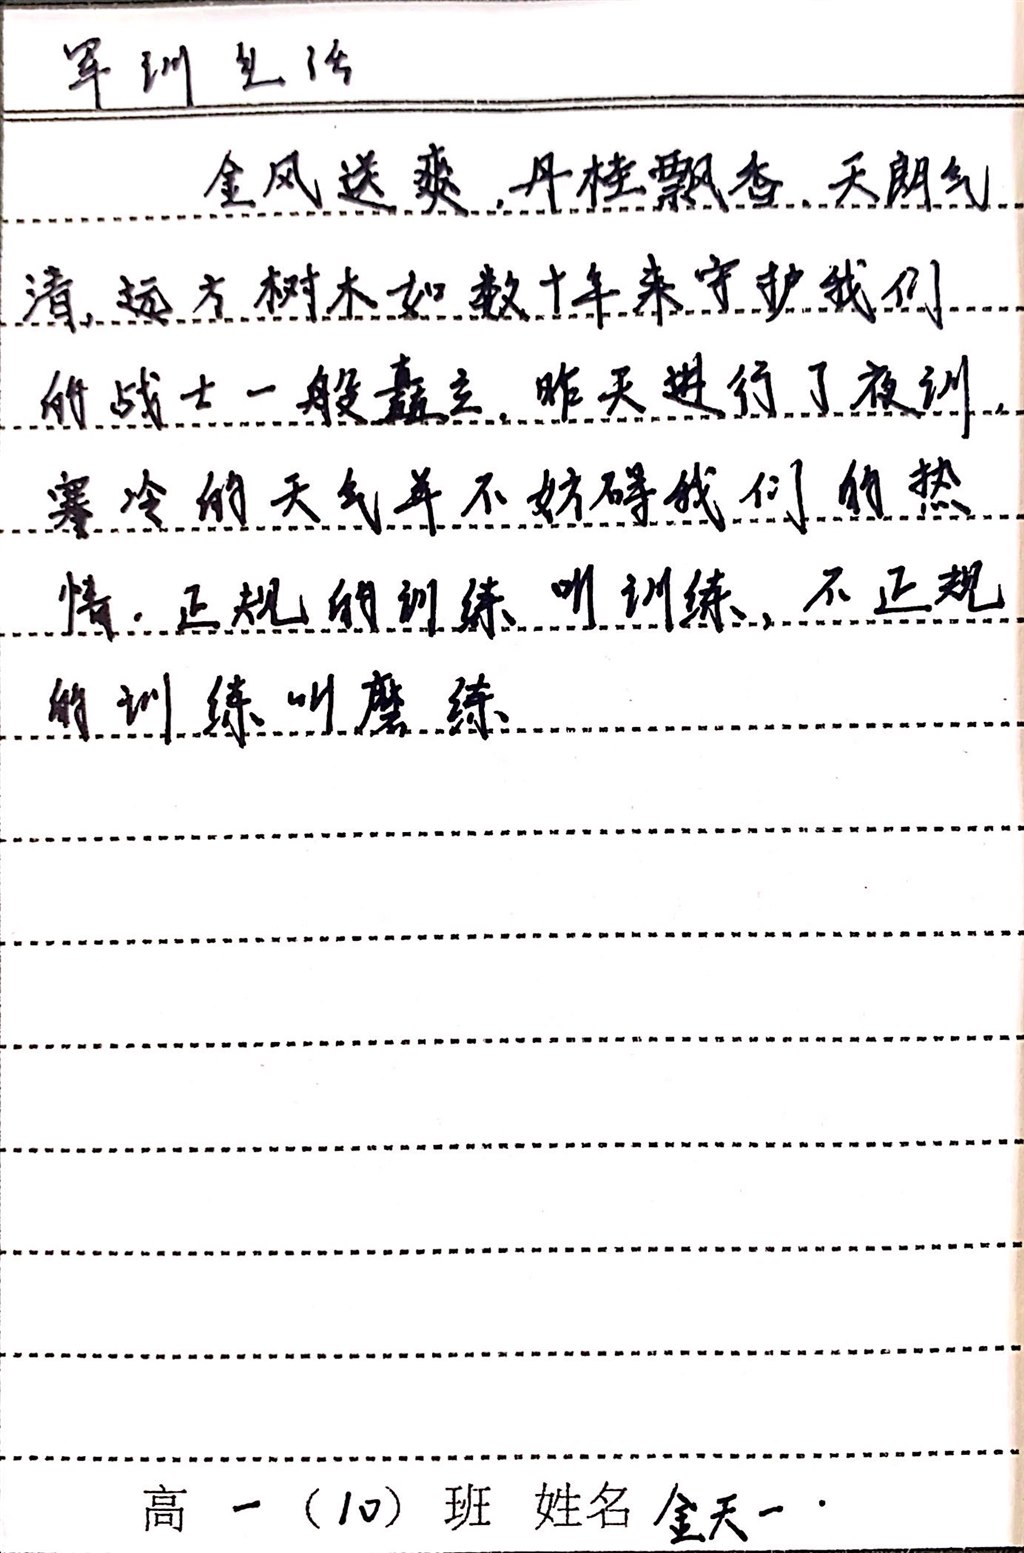 军训生活
金风送爽,丹桂飘香.天朗气
清,远方树木如数十年来守护我们
的战士一般矗立.昨天进行了夜训.
寒冷的天气并不妨碍我们的热
情.正规的训练叫训练,不正规
的训练叫磨练
高一(10)班 姓名金天一.